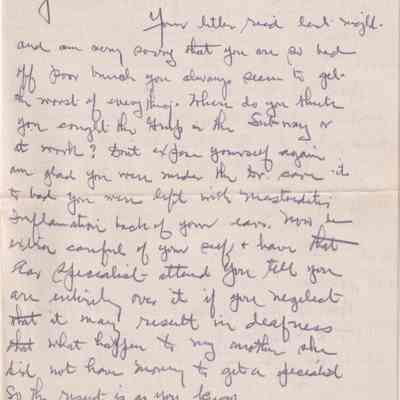 Your letter read last night.
and am very sorry that you are so bad
off poor much you always seem to get
the worst of everything. Where do you think
you caught the Grip in the Subway or
at work? Dont expose yourself again
am glad you were under the Dr. care it
to bad you were left with Mastoiditis,
Inflamation back of your ears. Now be
careful of your self + have that
Ear Specialist attend you tell you
are entirely over it if you neglect
that it may result in deafness
that what happen to my mother she
did not have money to get a specialist
So the result is as you know